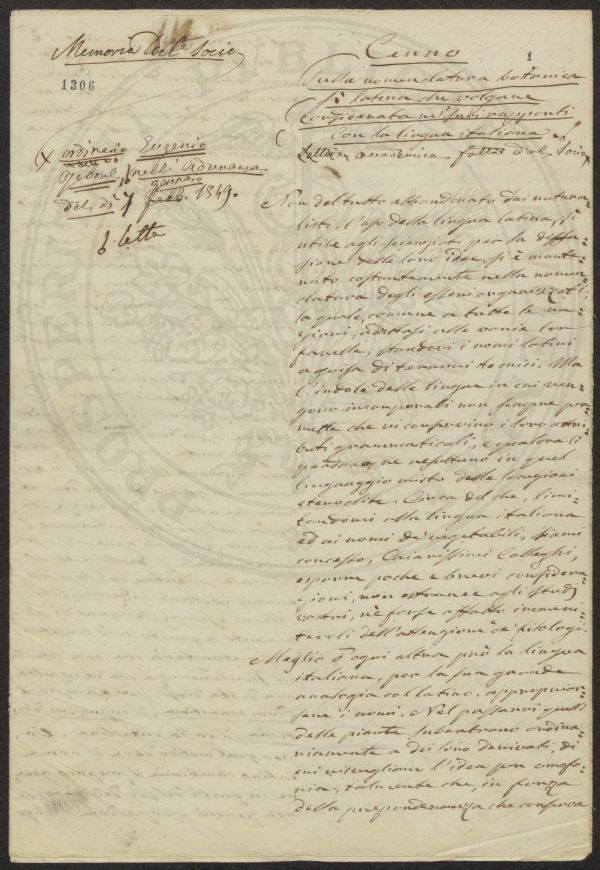 Memoria del Socio
1306
X ordinario Eugenio
Reboul, nell'Adunanza
gennaio
del dì 7 Febb. 1849.
Letta
Cenno
1
Sulla nomenclatura botanica
sì latina che volgare
Considerata ne' suoi rapporti
Con la lingua italiana
Lettura accademica fatta dal Socio X
Non del tutto abbandonato dai natura=
listi, l'uso della lingua latina, sì
utile agli scienziati per la diffu=
sione delle loro idee, si è mante=
nuto costantemente nella nomen=
clatura degli esseri organizzati,
la quale, comune a tutte le na=
zioni, adattasi alle varie lor
favelle, standovi i nomi latini
a guisa di termini tecnici. Ma
l'indole delle lingue in cui ven=
gono incorporati non sempre per=
mette che vi conservino i loro attri=
buti grammaticali, e qualora li
perdano, ne resultano in quel
linguaggio misto delle locuzioni
eteroclite. Circa del che, limi=
tandomi alla lingua italiana
ed ai nomi de' vegetabili, siami
concesso, Chiarissimi Colleghi,
esporre poche e brevi considera=
zioni, non estranee agli studj
vostri, nè forse affatto immeri=
tevoli dell'attenzione de' filologi.
Meglio d'ogni altra può la lingua
italiana, per la sua grande
analogia col latino, appropriar=
sene i nomi. Nel passarvi quelli
delle piante subentrano ordina=
riamente a dei loro derivati, di
cui risvegliano l'idea per omofo=
nia, talmente che, in forza
della preponderanza che conserva